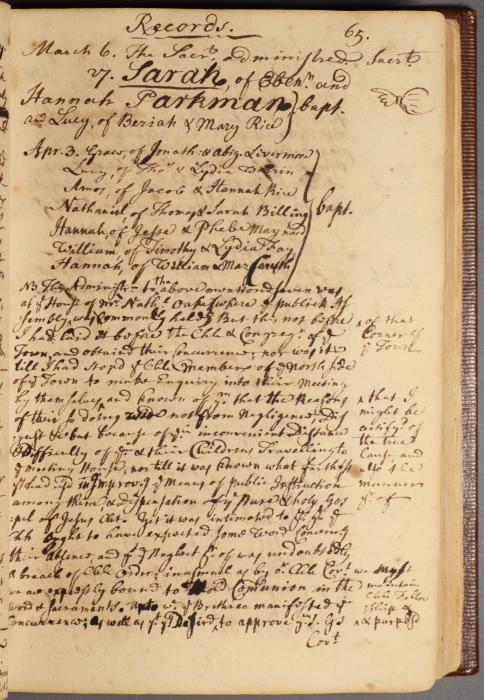 Records.
65.
March 6. The Sacrt. administred. Sacrt.
27. Sarah, of Ebenr. and
Hannah Parkman } bapt.
and Lucy, of Beriah & Mary Rice
Apr. 3. Grace, of Jonath: & Abig. Livermore
Lucy, of Thos & Lydia
Amos, of Jacob & Hannah Rice
Nathaniel, of Thomas & Sarah Billing } bapt.
Hannah, of Jesse & Phebe Maynard
William, of Timothy & Lydia Fay
Hannah, of William & Mary
NB The Administrn. to the above mentiond seven was
at ye House of Mr. Nathl. Oake (where ye publick As
sembly was Commonly held) But this not before
I had laid it before the Chh & Congregn. of ye
Town, and obtaind their Concurrence; nor was it
till I had Stop'd ye Chh Members of ye North side
of ye Town to make Enquiry into their Meeting
by themselves, and known of ym that the Reasons
of their so doing not from Negligence, Dis
gust &c but because of yir inconvenient Distance
& Difficulty of yir & their Childrens Travelling to
ye Meeting House, nor till it was known what further
yy had in Improvg ye Means of Public Instruction
among them & dispensation of ye Pure & holy Gos
pel of Jesus Christ. Yet it was intimated to ym yt ye
Chh ought to have expected some Word Concerng
their absence, and yt ye Neglect yr of was undoubtedly
a breach of Chh Order; inasmuch as by or Chh Covt we must
we are expressly bound to Hold Communion in the
Word & Sacraments. Unto wc ye Brethren manifested yr
Concurrence; as well as yt yy Desird to approve
^ of that
Corner of
ye Town
^ that I
might be
certify'd of
the true
Cause and
also ye
manner
yr of
maintain
Chh Fellow
ship &
^ & purpos'd
Covt